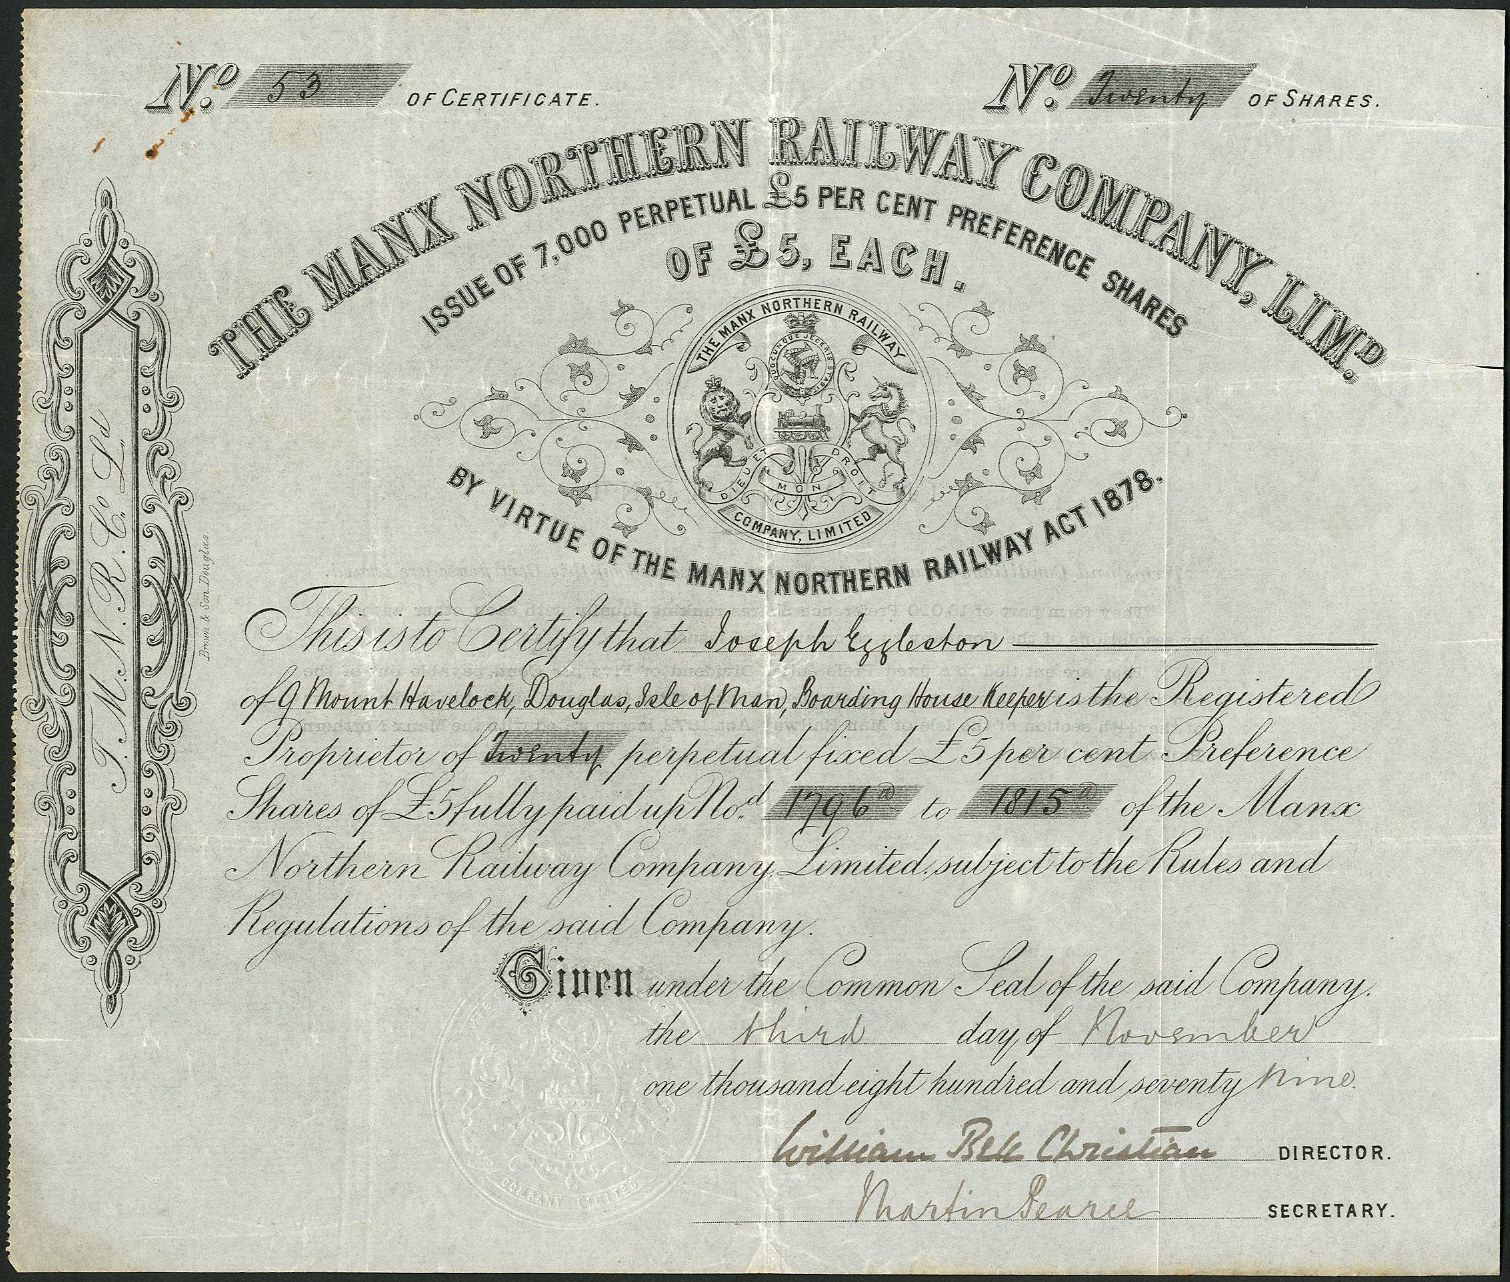 No. 53 OF CERTIFICATE.
No. Twenty OF SHARES.
THE MANX NORTHERN RAILWAY COMPANY, LIMD.
ISSUE OF 7,000 PERPETUAL £5 PER CENT PREFERENCE SHARES
OF £5, EACH.
THE MANX NORTHERN RAILWAY
QUOCUNQUE JECERIS STABIT
DIEU ET MON DROIT
COMPANY, LIMITED
BY VIRTUE OF THE MANX NORTHERN RAILWAY ACT 1878.
T. M. N. R. Co. Ld
Brown & Son. Douglas.
This is to Certify that Joseph Eggleston
of 9 Mount Havelock, Douglas, Isle of Man, Boarding House Keeper is the Registered
Proprietor of Twenty perpetual fixed £5 per cent Preference
Shares of £5 fully paid up No.d 1796a to 1815a of the Manx
Northern Railway Company, Limited, subject to the Rules and
Regulations of the said Company.
Given under the Common Seal of the said Company.
the third day of November
one thousand eight hundred and seventy nine
William Bell Christian DIRECTOR.
Martin Pearce SECRETARY.
COMPANY LIMITED